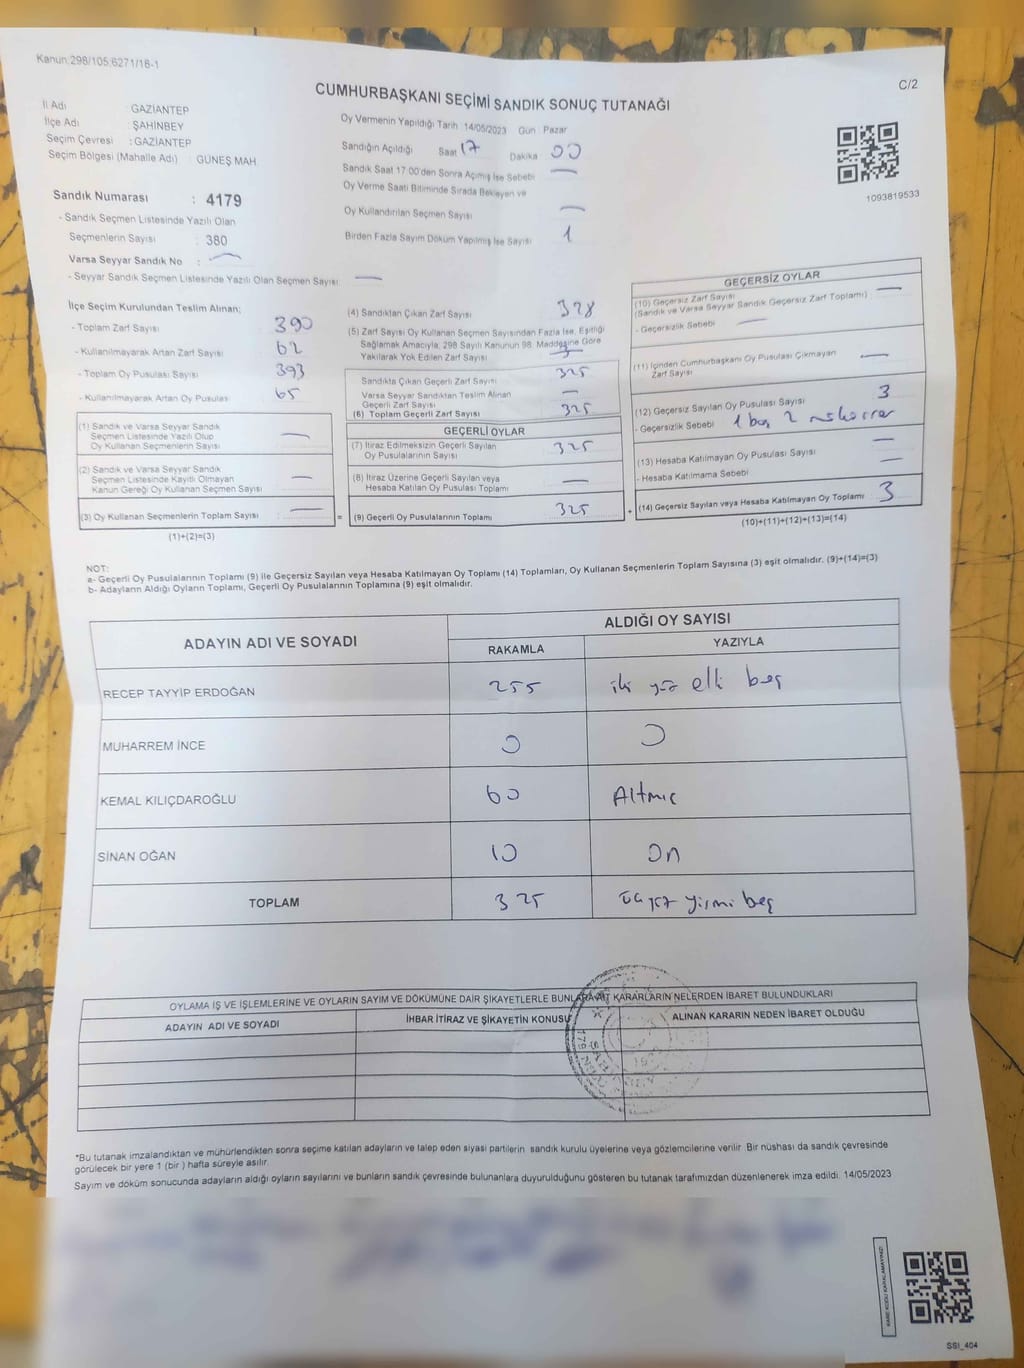 Kanun:298/105:6271/18-1
C/2
CUMHURBAŞKANI SEÇİMİ SANDIK SONUÇ TUTANAĞI
İl Adı : GAZİANTEP
İlçe Adı : ŞAHİNBEY
Seçim Çevresi : GAZİANTEP
Seçim Bölgesi (Mahalle Adı) : GÜNEŞ MAH
Oy Vermenin Yapıldığı Tarih 14/05/2023 Gün Pazar
Sandığın Açıldığı Saat 17 Dakika 00
Sandık Saat 17:00'den Sonra Açımış İse Sebebi —
Oy Verme Saati Bitiminde Sırada Bekleyen ve
Oy Kullandırılan Seçmen Sayısı —
Birden Fazla Sayım Döküm Yapılmış İse Sayısı 1
1093819533
Sandık Numarası : 4179
- Sandık Seçmen Listesinde Yazılı Olan
Seçmenlerin Sayısı : 380
Varsa Seyyar Sandık No : —
- Seyyar Sandık Seçmen Listesinde Yazılı Olan Seçmen Sayısı: —
İlçe Seçim Kurulundan Teslim Alınan;
- Toplam Zarf Sayısı 390
- Kullanılmayarak Artan Zarf Sayısı 62
- Toplam Oy Pusulası Sayısı 393
- Kullanılmayarak Artan Oy Pusulası 65
(1) Sandık ve Varsa Seyyar Sandık
Seçmen Listesinde Yazılı Olup
Oy Kullanan Seçmenlerin Sayısı —
(2) Sandık ve Varsa Seyyar Sandık
Seçmen Listesinde Kayıtlı Olmayan
Kanun Gereği Oy Kullanan Seçmen Sayısı —
(3) Oy Kullanan Seçmenlerin Toplam Sayısı : —
(1)+(2)=(3)
(4) Sandıktan Çıkan Zarf Sayısı 328
(5) Zarf Sayısı Oy Kullanan Seçmen Sayısından Fazla İse, Eşitliği
Sağlamak Amacıyla, 298 Sayılı Kanunun 98. Maddesine Göre
Yakılarak Yok Edilen Zarf Sayısı
Sandıkta Çıkan Geçerli Zarf Sayısı 325
Varsa Seyyar Sandıktan Teslim Alınan
Geçerli Zarf Sayısı —
(6) Toplam Geçerli Zarf Sayısı 325
GEÇERLİ OYLAR
(7) İtiraz Edilmeksizin Geçerli Sayılan
Oy Pusulalarının Sayısı 325
(8) İtiraz Üzerine Geçerli Sayılan veya
Hesaba Katılan Oy Pusulası Toplamı —
= (9) Geçerli Oy Pusulalarının Toplamı 325 +
GEÇERSİZ OYLAR
(10) Geçersiz Zarf Sayısı —
(Sandık ve Varsa Seyyar Sandık Geçersiz Zarf Toplamı)
- Geçersizlik Sebebi —
(11) İçinden Cumhurbaşkanı Oy Pusulası Çıkmayan
Zarf Sayısı —
(12) Geçersiz Sayılan Oy Pusulası Sayısı 3
- Geçersizlik Sebebi 1 boş 2
(13) Hesaba Katılmayan Oy Pusulası Sayısı —
- Hesaba Katılmama Sebebi —
(14) Geçersiz Sayılan veya Hesaba Katılmayan Oy Toplamı 3
(10)+(11)+(12)+(13)=(14)
NOT:
a- Geçerli Oy Pusulalarının Toplamı (9) ile Geçersiz Sayılan veya Hesaba Katılmayan Oy Toplamı (14) Toplamları, Oy Kullanan Seçmenlerin Toplam Sayısına (3) eşit olmalıdır. (9)+(14)=(3)
b- Adayların Aldığı Oyların Toplamı, Geçerli Oy Pusulalarının Toplamına (9) eşit olmalıdır.
ADAYIN ADI VE SOYADI ALDIĞI OY SAYISI
RAKAMLA YAZIYLA
RECEP TAYYİP ERDOĞAN 255 iki yüz elli beş
MUHARREM İNCE 0 0
KEMAL KILIÇDAROĞLU 60 Altmış
SİNAN OĞAN 10 On
TOPLAM 325 üçyüz yirmi beş
OYLAMA İŞ VE İŞLEMLERİNE VE OYLARIN SAYIM VE DÖKÜMÜNE DAİR ŞİKAYETLERLE BUNLARA AİT KARARLARIN NELERDEN İBARET BULUNDUKLARI
ADAYIN ADI VE SOYADI İHBAR İTİRAZ VE ŞİKAYETİN KONUSU ALINAN KARARIN NEDEN İBARET OLDUĞU
*Bu tutanak imzalandıktan ve mühürlendikten sonra seçime katılan adayların ve talep eden siyasi partilerin sandık kurulu üyelerine veya gözlemcilerine verilir. Bir nüshası da sandık çevresinde
görülecek bir yere 1 (bir ) hafta süreyle asılır.
Sayım ve döküm sonucunda adayların aldığı oyların sayılarını ve bunların sandık çevresinde bulunanlara duyurulduğunu gösteren bu tutanak tarafımızdan düzenlenerek imza edildi. 14/05/2023
KARE KODU KARALAMAYINIZ!
SSI_404